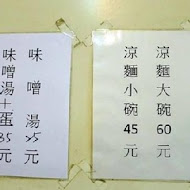 涼麵大碗60元
涼麵小碗45元
味噌湯25元
味噌湯+蛋35元